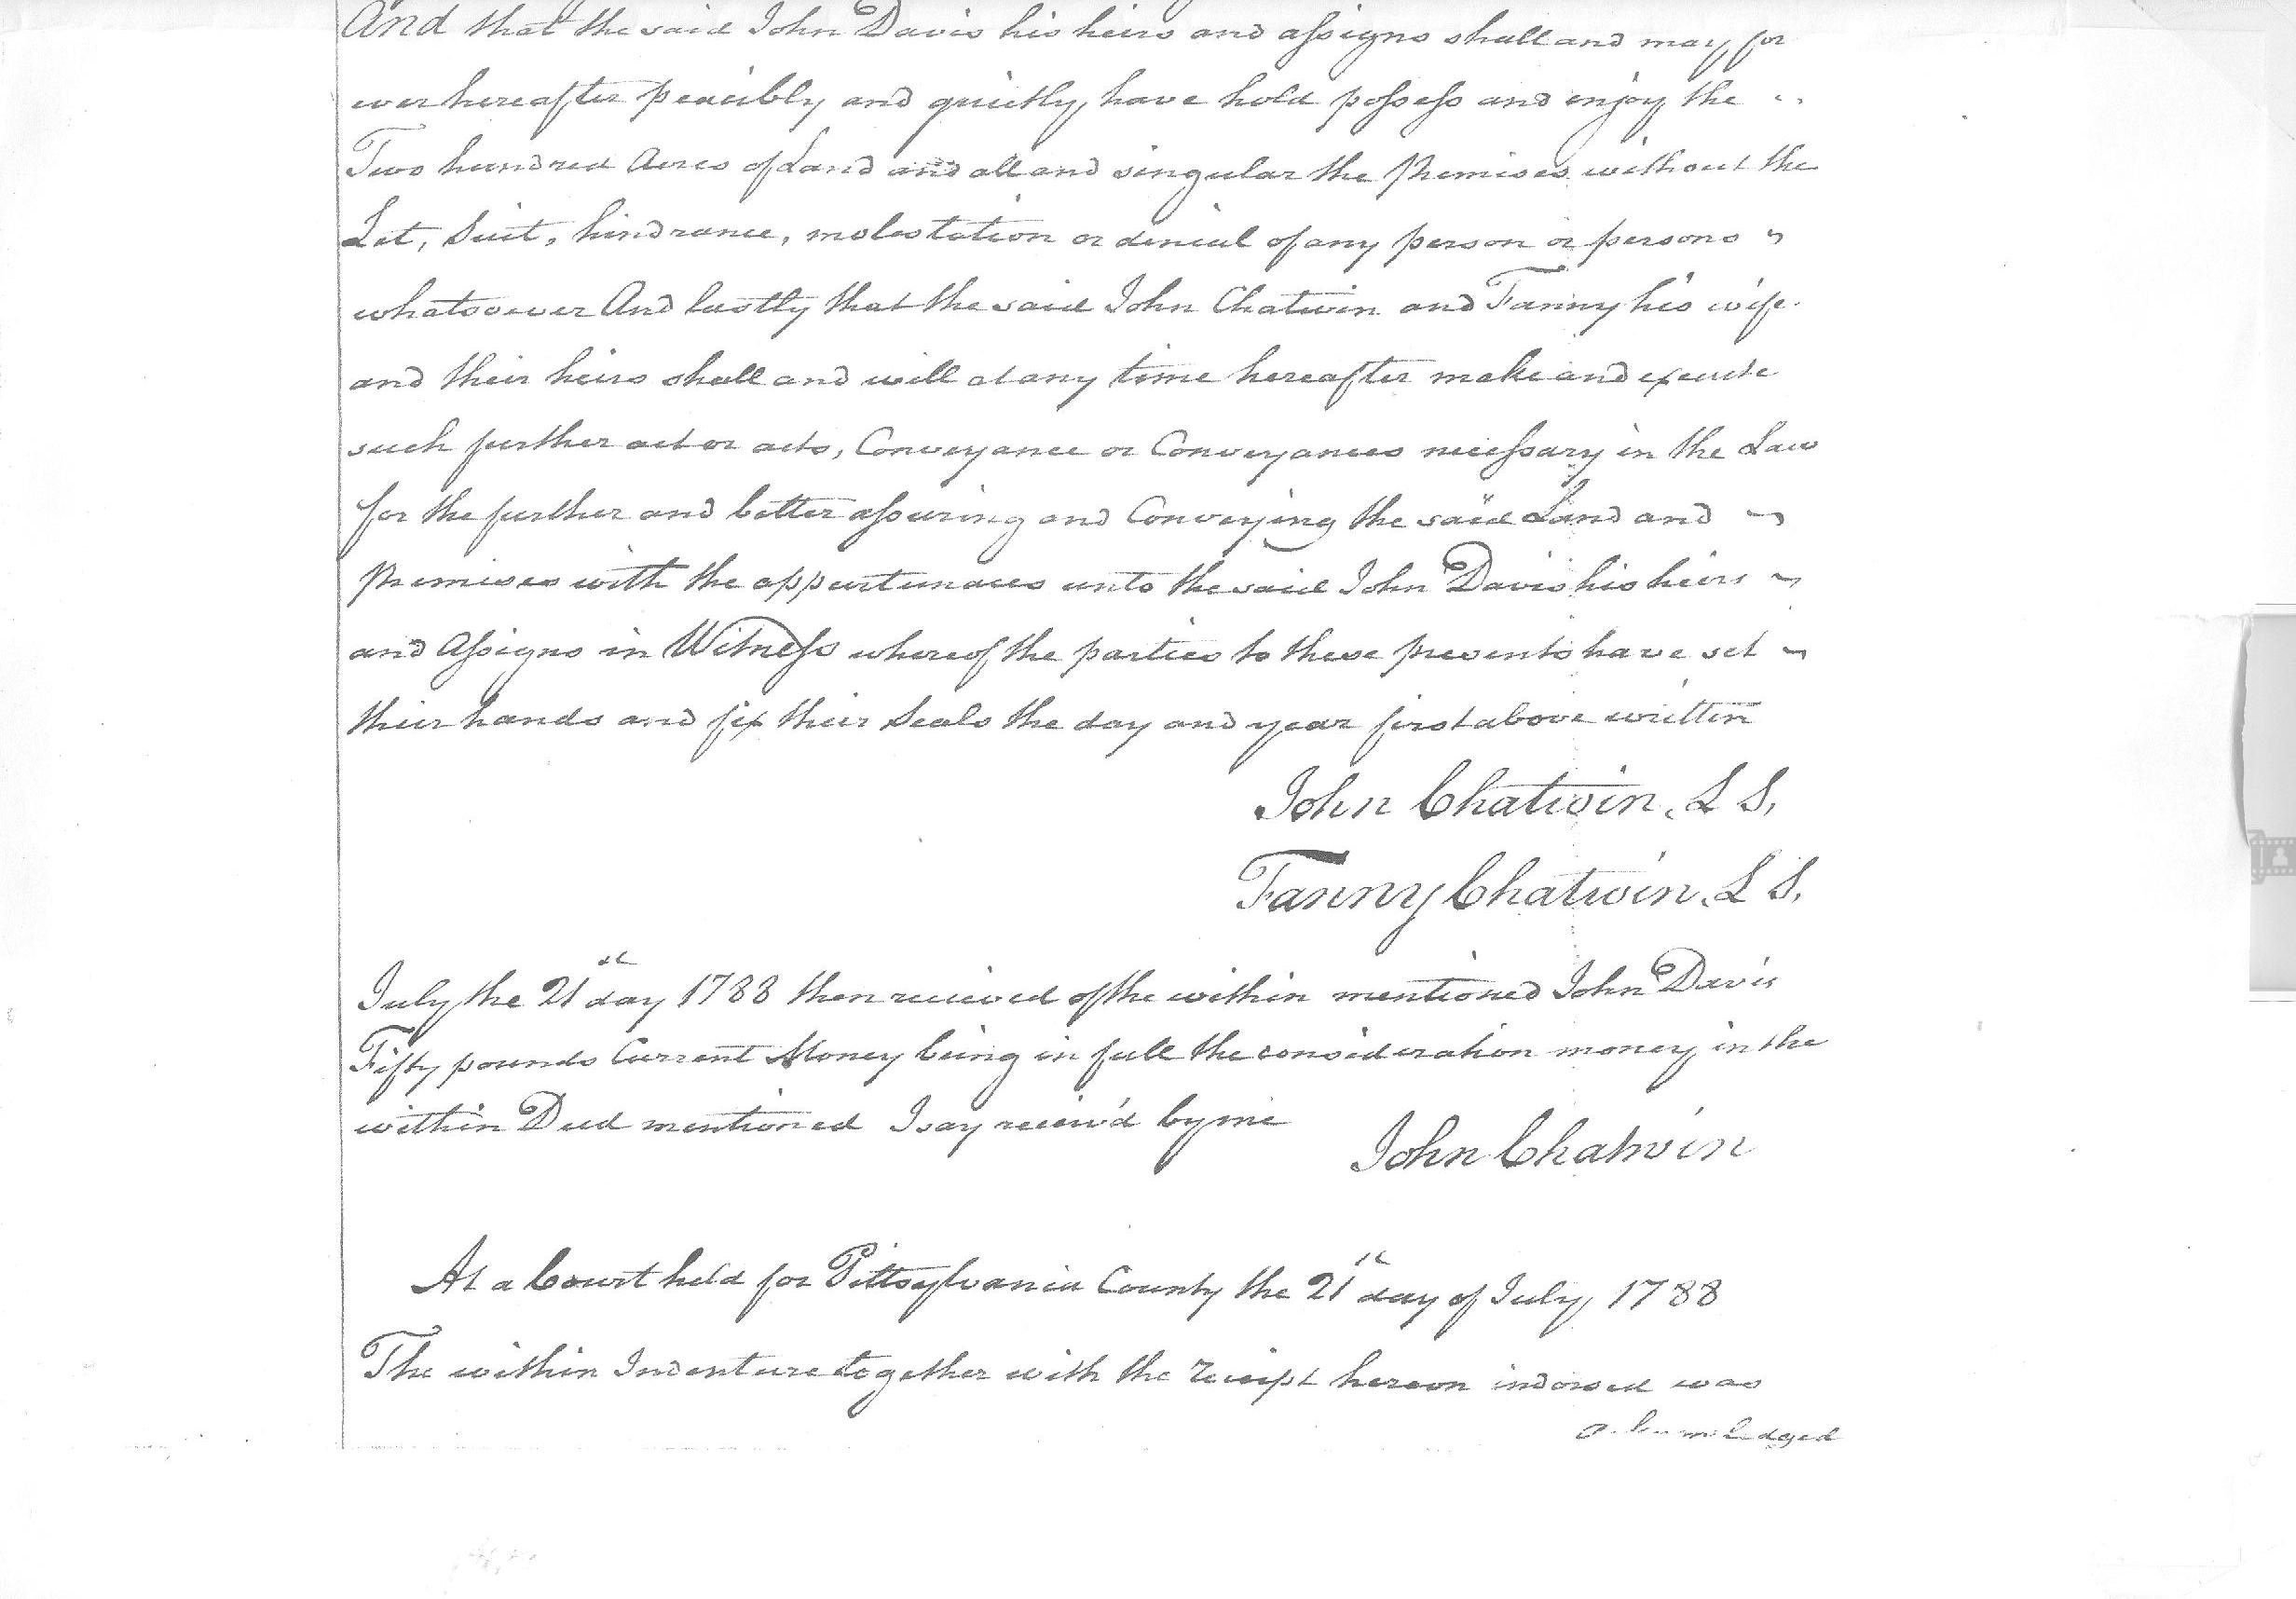 And that the said John Davis his heirs and assigns shall and may for
ever hereafter peacibly and quietly have hold possess and enjoy the
Two hundred Acres of Land and all and singular the Premises without the
Let, Suit, hindrance, molestation or denial of any person or persons
whatsoever And lastly that the said John Chatwin and Fanny his wife
and their heirs shall and will at any time hereafter make and execute
such further act or acts, Conveyance or Conveyances necessary in the Law
for the further and better assuring and Conveying the said Land and
Premises with the appurtunaces unto the said John Davis his heirs
and Assigns in Witness whereof the parties to these presents have set
their hands and fix their Seals the day and year first above written
John Chatwin. L S.
Fanny Chatwin. L S.
July the 21st day 1788 then recieved of the within mentioned John Davis
Fifty pounds Current Money being in full the consideration money in the
within Deed mentioned I say reciev'd by me
John Chatwin
At a Court held for Pittsylvania County the 21st day of July 1788
The within Indenture together with the reciept hereon indorsed was
acknowledged